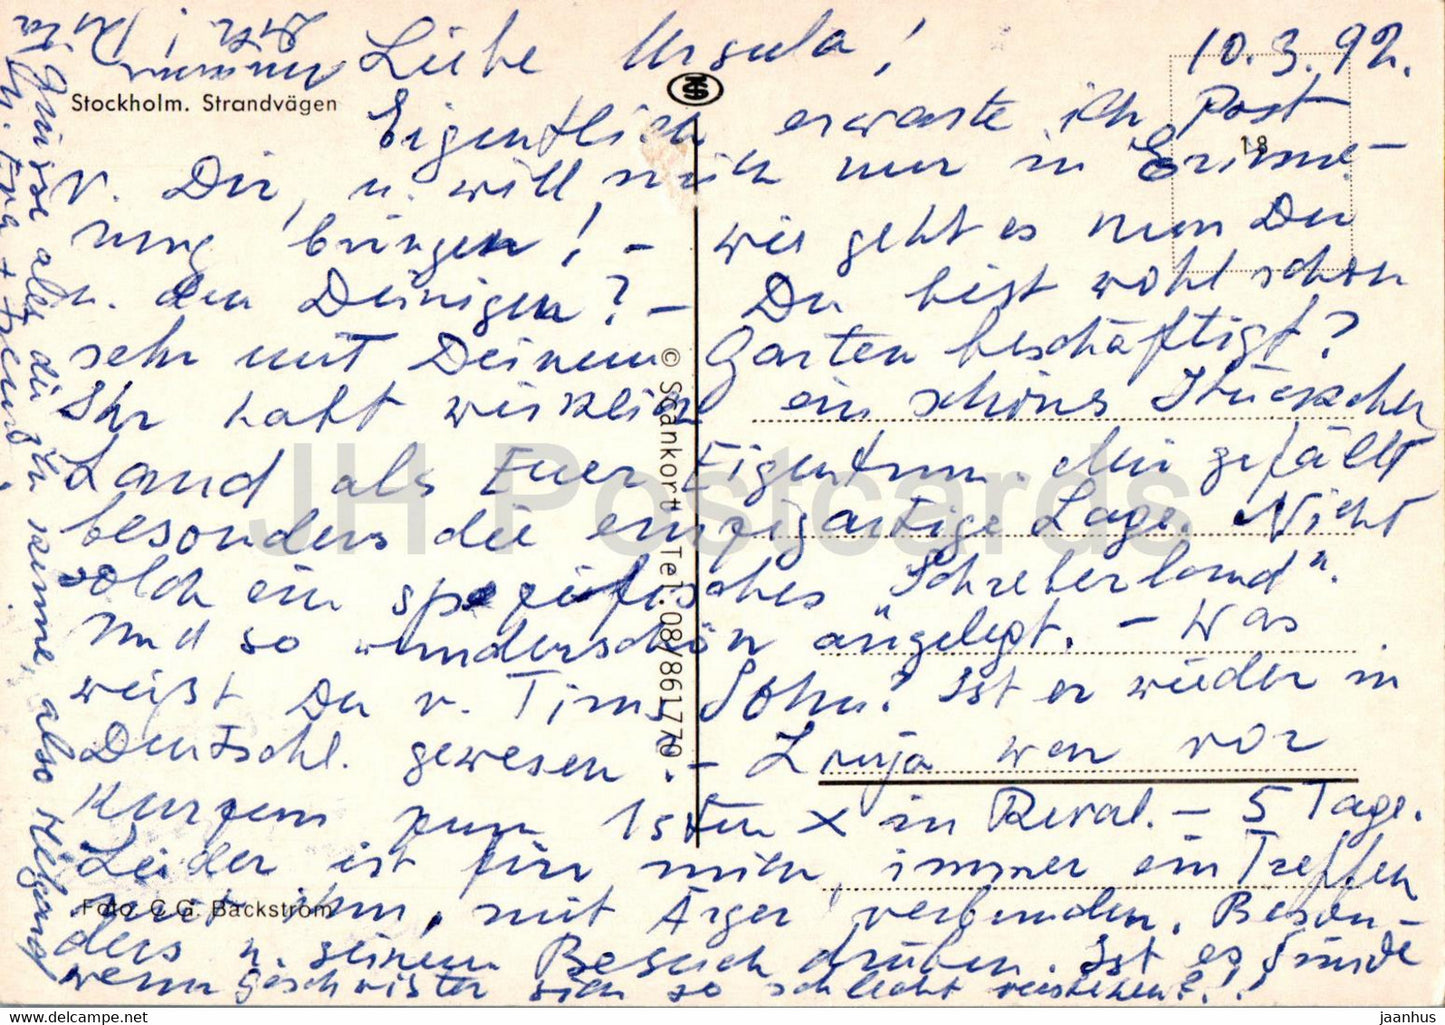 10.3.92.
Liebe Ursula!
Stockholm. Strandvägen
Eigentlich erwarte ich Post
18
v. Dir, u. will mich nur in Erinne-
rung bringen! – wie geht es nun Dir
u. den Deinigen? – Du bist wohl schon
sehr mit Deinem Garten beschäftigt?
Ihr habt wirklich ein schönes Stückchen
Land als Euer Eigentum. Mir gefällt
besonders die einzigartige Lage. Nicht
solch ein spezifisches „Schreberland".
Und so wunderschön angelegt. – Was
weißt Du v. Tims Sohn? Ist er wieder in
Deutschl. gewesen? – war vor
Kurzem zum 1sten X in Reval. – 5 Tage.
Leider ist für mich, immer ein Treffen
mit ihm, mit Ärger verbunden. Beson-
ders n. seinem Besuch drüben. Ist es Sünde
wenn Geschwister sich so schlecht verstehen?!!
Foto C.G. Bäckström
© Scankort Tel. 08/861770
Grüsse alle die zu, also Helgard
JH Postcards
jaanhus